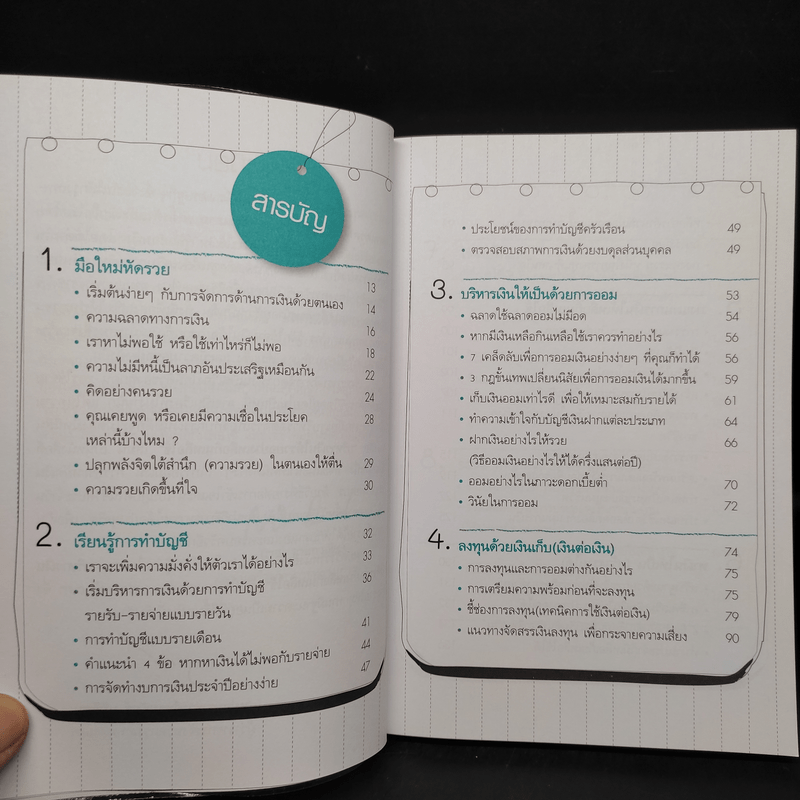 สารบัญ
1. มือใหม่หัดรวย 13
• เริ่มต้นง่ายๆ กับการจัดการด้านการเงินด้วยตนเอง 14
• ความฉลาดทางการเงิน 16
• เราหาไม่พอใช้ หรือใช้เท่าไหร่ก็ไม่พอ 18
• ความไม่มีหนี้เป็นลาภอันประเสริฐเหมือนกัน 22
• คิดอย่างคนรวย 24
• คุณเคยพูด หรือเคยมีความเชื่อในประโยค 28
เหล่านี้บ้างไหม ?
• ปลุกพลังจิตใต้สำนึก (ความรวย) ในตนเองให้ตื่น 29
• ความรวยเกิดขึ้นที่ใจ 30
2. เรียนรู้การทำบัญชี 32
• เราจะเพิ่มความมั่งคั่งให้ตัวเราได้อย่างไร 33
• เริ่มบริหารการเงินด้วยการทำบัญชี 36
รายรับ-รายจ่ายแบบรายวัน
• การทำบัญชีแบบรายเดือน 41
• คำแนะนำ 4 ข้อ หากหาเงินได้ไม่พอกับรายจ่าย 44
• การจัดทำงบการเงินประจำปีอย่างง่าย 47
• ประโยชน์ของการทำบัญชีครัวเรือน 49
• ตรวจสอบสภาพการเงินด้วยงบดุลส่วนบุคคล 49
3. บริหารเงินให้เป็นด้วยการออม 53
• ฉลาดใช้ฉลาดออมไม่มีอด 54
• หากมีเงินเหลือกินเหลือใช้เราควรทำอย่างไร 56
• 7 เคล็ดลับเพื่อการออมเงินอย่างง่ายๆ ที่คุณก็ทำได้ 56
• 3 กฎขั้นเทพเปลี่ยนนิสัยเพื่อการออมเงินได้มากขึ้น 59
• เก็บเงินออมเท่าไรดี เพื่อให้เหมาะสมกับรายได้ 61
• ทำความเข้าใจกับบัญชีเงินฝากแต่ละประเภท 64
• ฝากเงินอย่างไรให้รวย 66
(วิธีออมเงินอย่างไรให้ได้ครึ่งแสนต่อปี)
• ออมอย่างไรในภาวะดอกเบี้ยต่ำ 70
• วินัยในการออม 72
4. ลงทุนด้วยเงินเก็บ(เงินต่อเงิน) 74
• การลงทุนและการออมต่างกันอย่างไร 75
• การเตรียมความพร้อมก่อนที่จะลงทุน 75
• ชี้ช่องการลงทุน(เทคนิคการใช้เงินต่อเงิน) 79
• แนวทางจัดสรรเงินลงทุน เพื่อกระจายความเสี่ยง 90